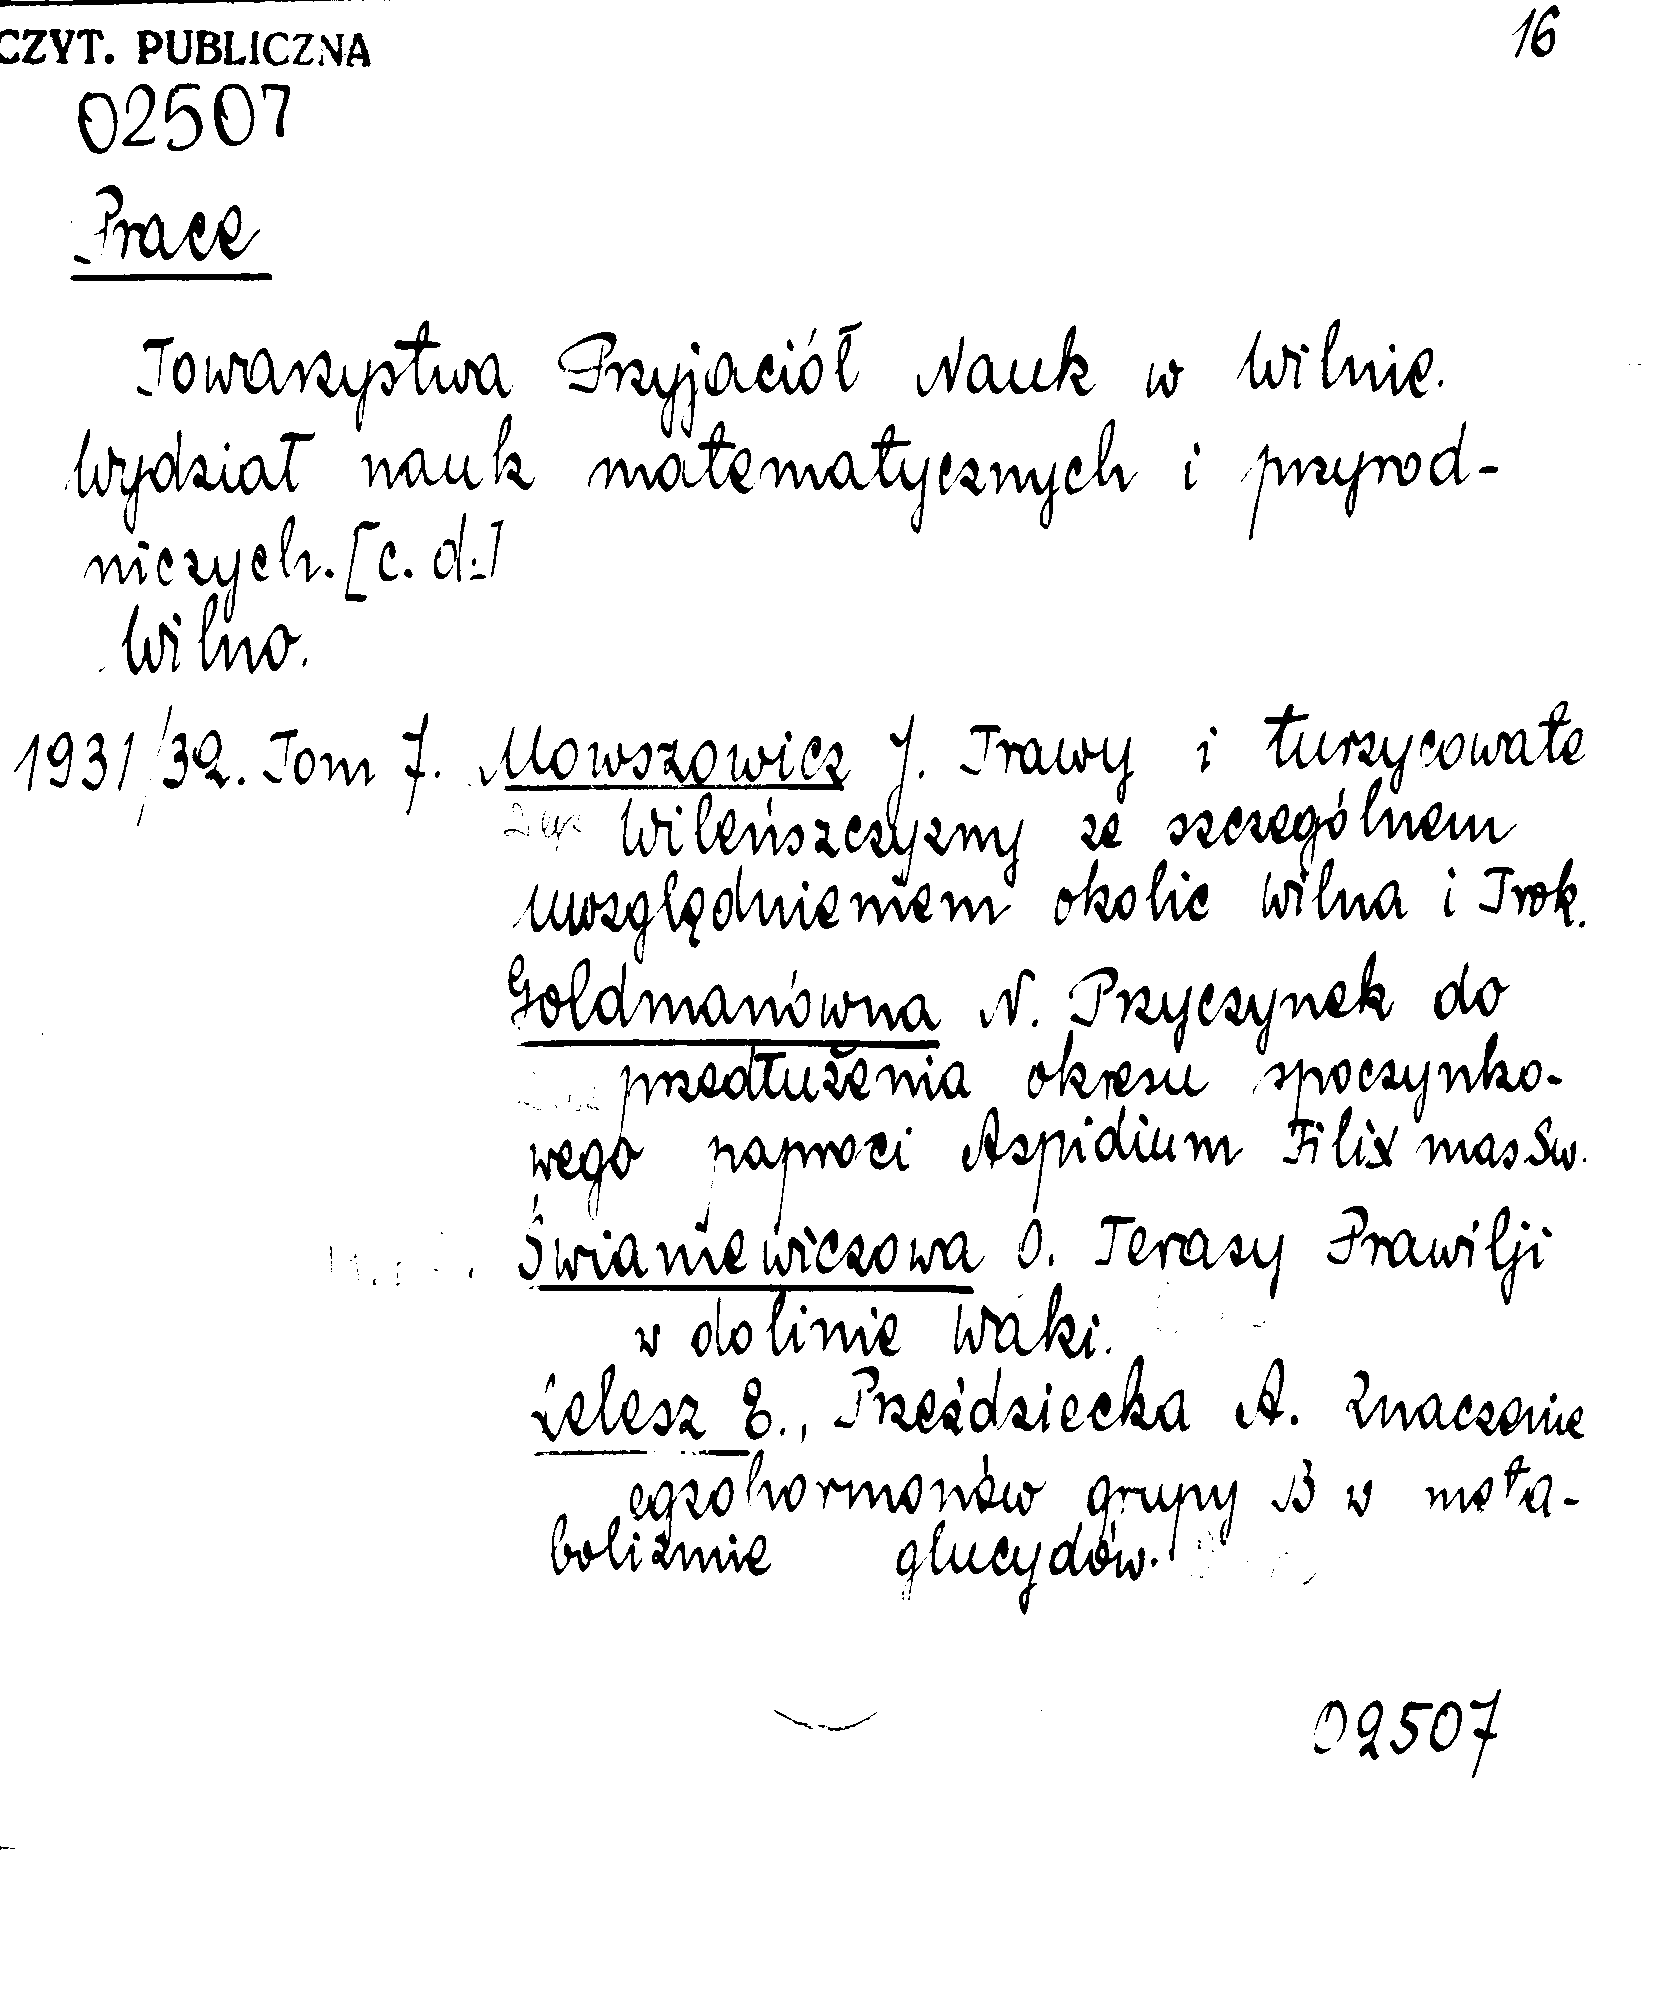 CZYT. PUBLICZNA
16
02507
Prace
Towarzystwa Przyjaciół Nauk w Wilnie.
Wydział nauk matematycznych i przyrod-
niczych. [c. d.]
Wilno.
1931/32. Tom 7. Mowszowicz J. Trawy i turzycowate
Wileńszczyzny ze szczególnem
uwzględnieniem okolic Wilna i Trok.
Goldmanówna N. Przyczynek do
przedłużenia okresu spoczynko-
wego paproci Aspidium Filix mas Sw.
Świaniewiczowa O. Terasy Prawilji
w dolinie Waki.
Lelesz E., Przeździecka A. Znaczenie
egzohormonów grupy B w meta-
bolizmie glucydów.
02507